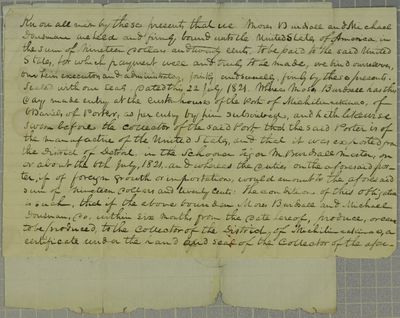 Know all men by these presents that we Moses Burdsall and Michael
Dousman are held and firmly bound unto the United States of America in
the sum of Nineteen Dollars and twenty cents, to be paid to the said United
States, for which payment well and truly to be made, we bind ourselves,
our heirs executors and administrators, jointly and severally, firmly by these presents.
Sealed with our seals, Dated this 22 July 1821. Whereas Moses Burdsall has this
day made entry at the Custom house of the Port of Michilimackinac, of
Barrels of Porter, as per entry by him subscribed, and hath likewise
sworn before the Collector of the said Port that the said Porter is of
the manufacture of the United States, and that it was exported from
the District of Detroit in the Schooner Burdsall Master, on
or about the 6th July, 1821, and whereas the duties on the aforesaid por-
ter, if of foreign growth or importation, would amount to the aforesaid
sum of Nineteen Dollars and twenty cents: The condition of this obligation
is such, that if the above bounden Moses Burdsall and Michael
Dousman, do, within six months from the date hereof, produce, or cause
to be produced, to the Collector of the District, of Michilimackinac, a
certificate under the hand and seal of the Collector of the afore-